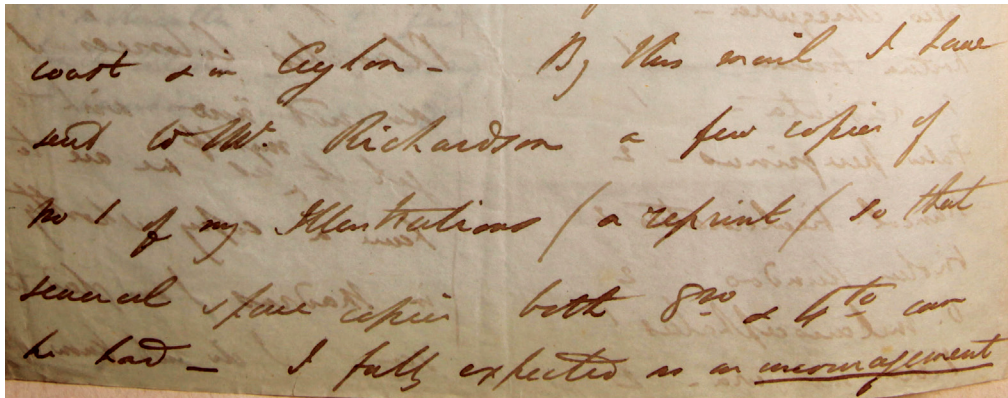 coast & in Ceylon – By this mail I have
sent to Mr. Richardson a few copies of
No 1 of my Illustrations (a reprint) so that
several spare copies both 8vo & 4to can
be had – I fully expected as an encouragement